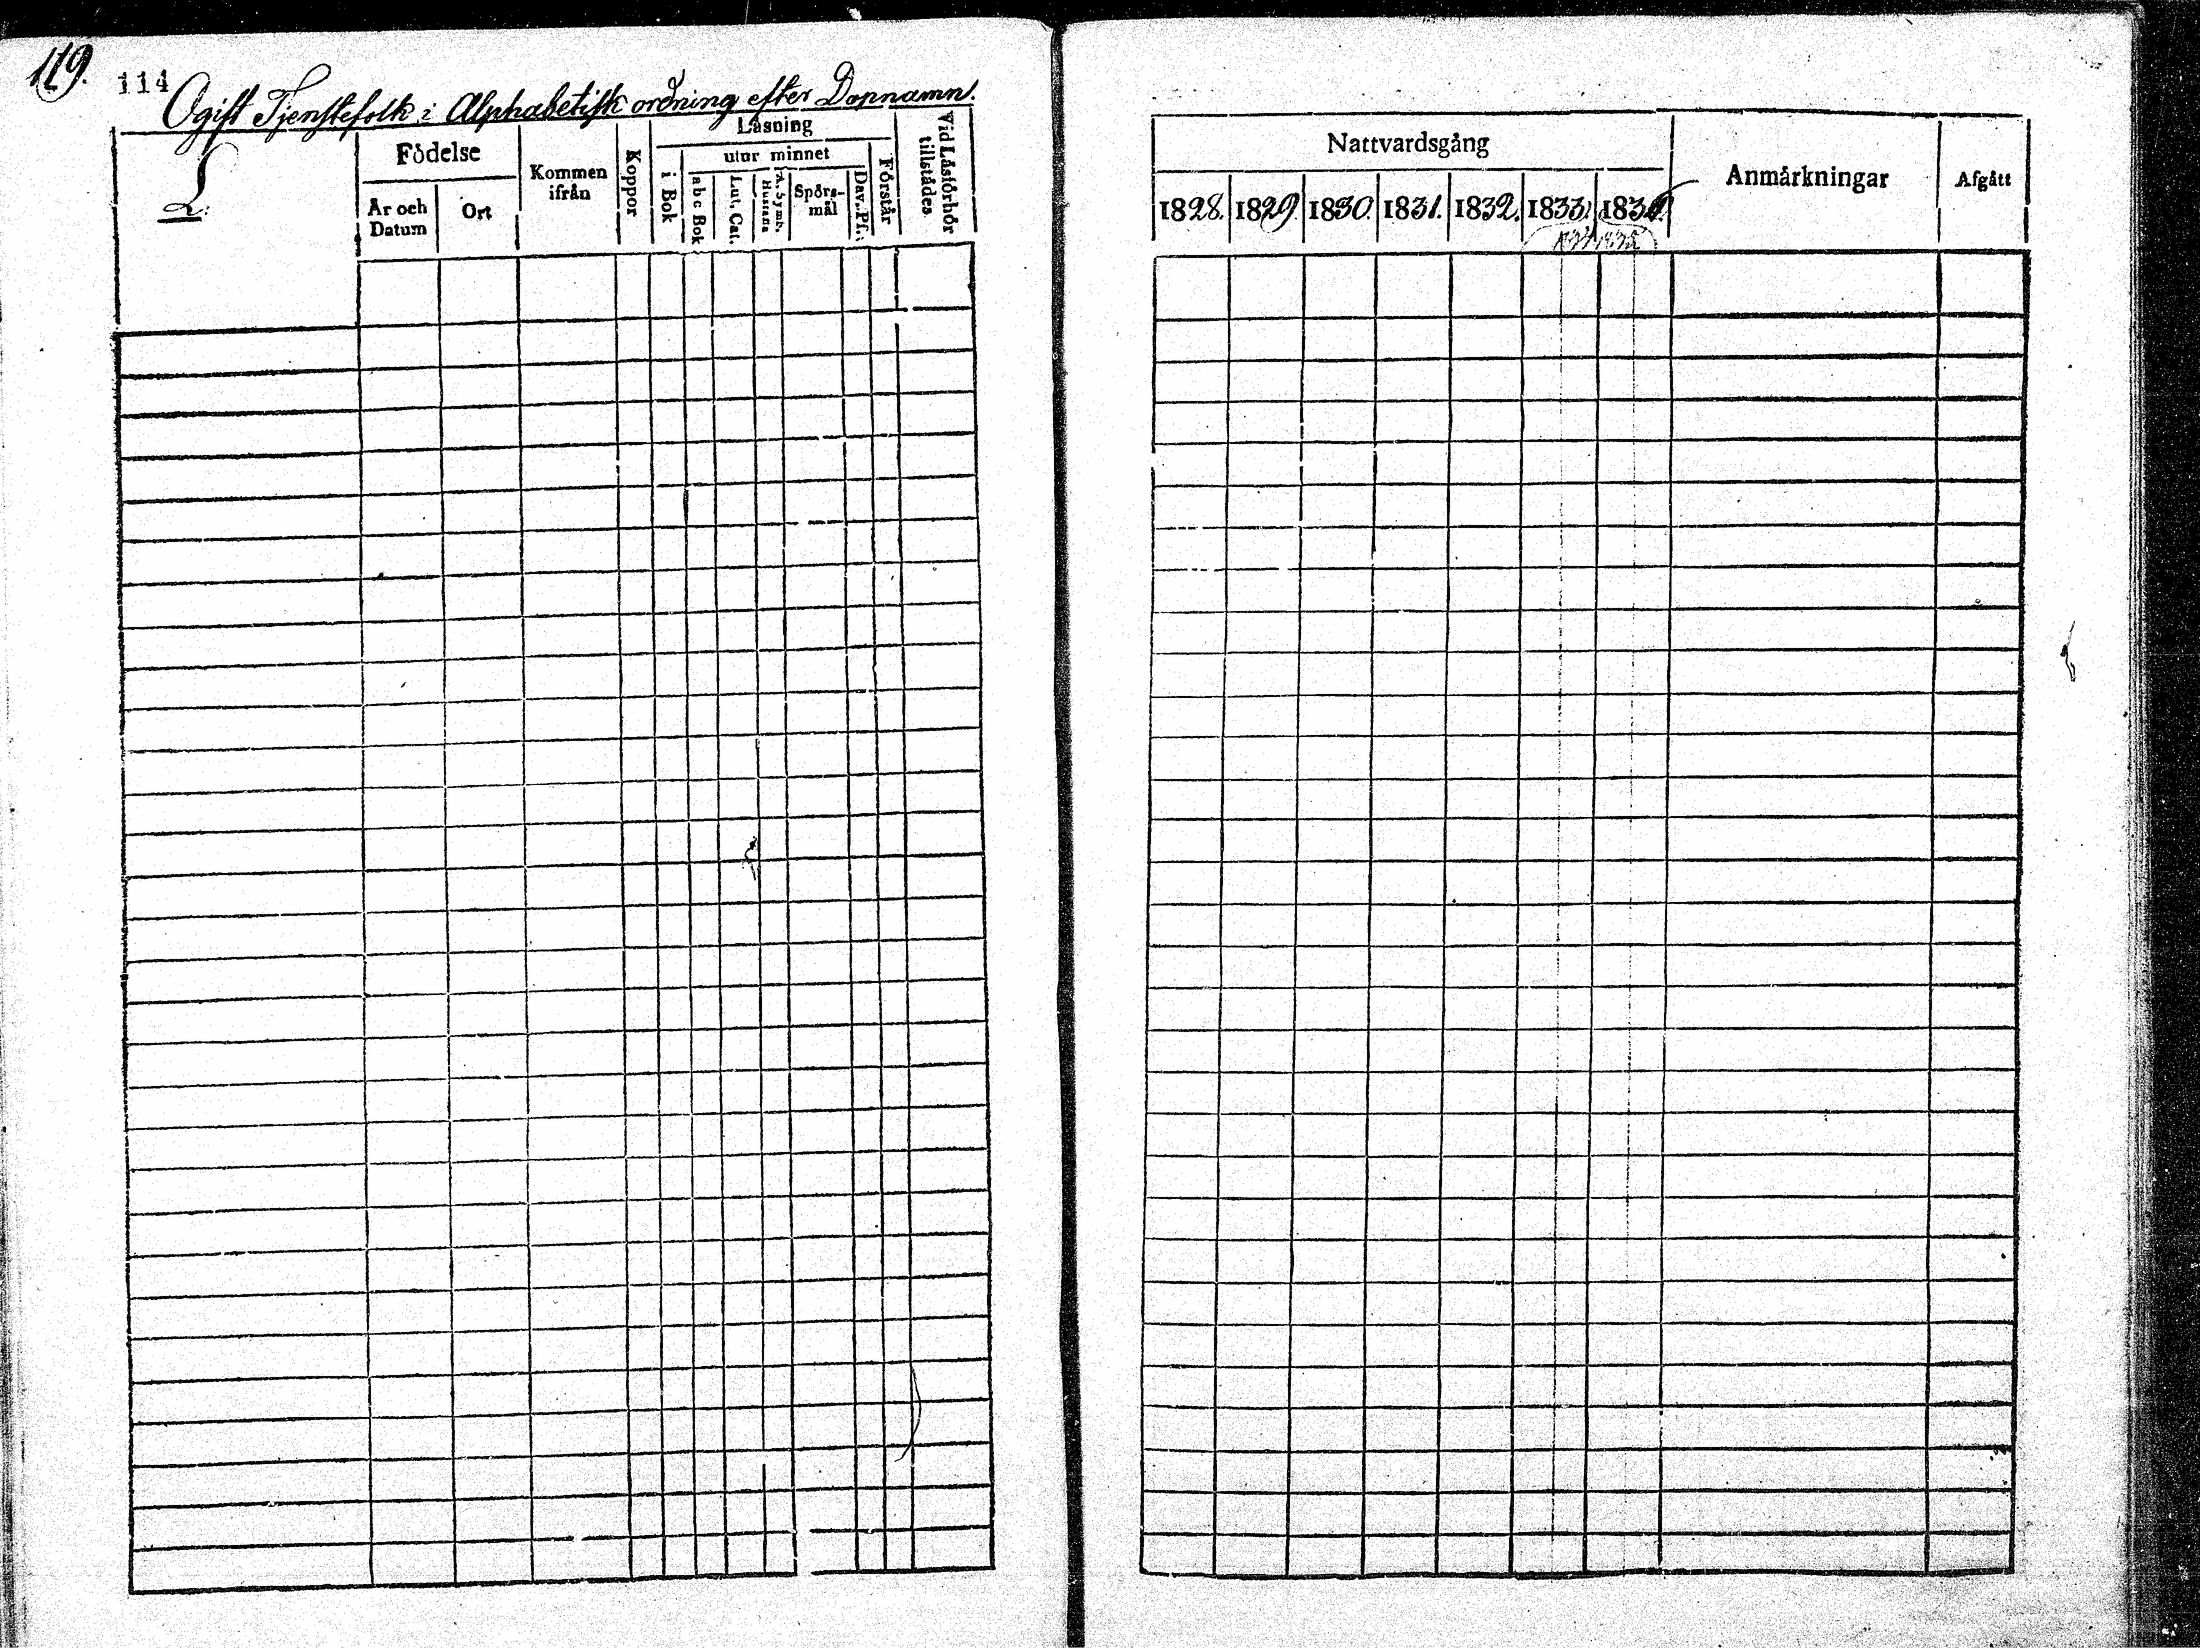 119.
114
Ogift Tjenstefolk i Alphabetisk ordning efter Dopnamn.
L:
Födelse
År och Datum
Ort
Kommen ifrån
Koppor
Läsning
i Bok
utur minnet
abc Bok
Lut. Cat.
A. Symb.
Hustafla
Spörs-
mål
Dav. Ps.
Förstår
Vid Läsförhör
tillstädes
Nattvardsgång
1828. 1829. 1830. 1831. 1832. 1833.
Anmärkningar
Afgått